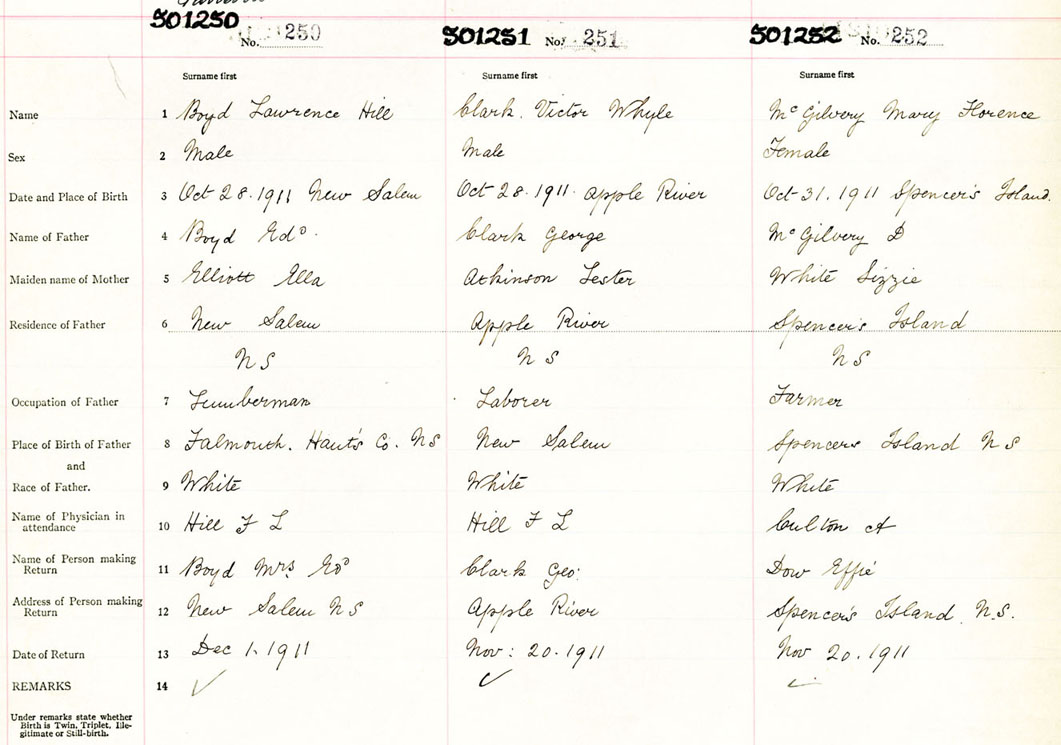 501250 No. 250 501251 No. 251 501252 No. 252
Surname first Surname first Surname first
Name 1 Boyd Lawrence Hill Clark. Victor Whyle McGilvery Mary Florence
Sex 2 Male Male Female
Date and Place of Birth 3 Oct 28. 1911 New Salem Oct 28. 1911. Apple River Oct 31. 1911 Spencer's Island.
Name of Father 4 Boyd Edd. Clark George McGilvery D
Maiden name of Mother 5 Elliott Ella Atkinson Lester White Lizzie
Residence of Father 6 New Salem Apple River Spencer's Island
N S N S N S
Occupation of Father 7 Lumberman Laborer Farmer
Place of Birth of Father 8 Falmouth. Hant's Co. N S New Salem Spencers Island N S
and
Race of Father. 9 White White White
Name of Physician in
attendance 10 Hill F L Hill F L Culton A
Name of Person making
Return 11 Boyd Mrs Edd Clark Geo. Dow Effie
Address of Person making
Return 12 New Salem N S Apple River Spencer's Island. N.S.
Date of Return 13 Dec 1. 1911 Nov: 20. 1911 Nov 20. 1911
REMARKS 14
Under remarks state whether
Birth is Twin, Triplet, Ille-
gitimate or Still-birth.